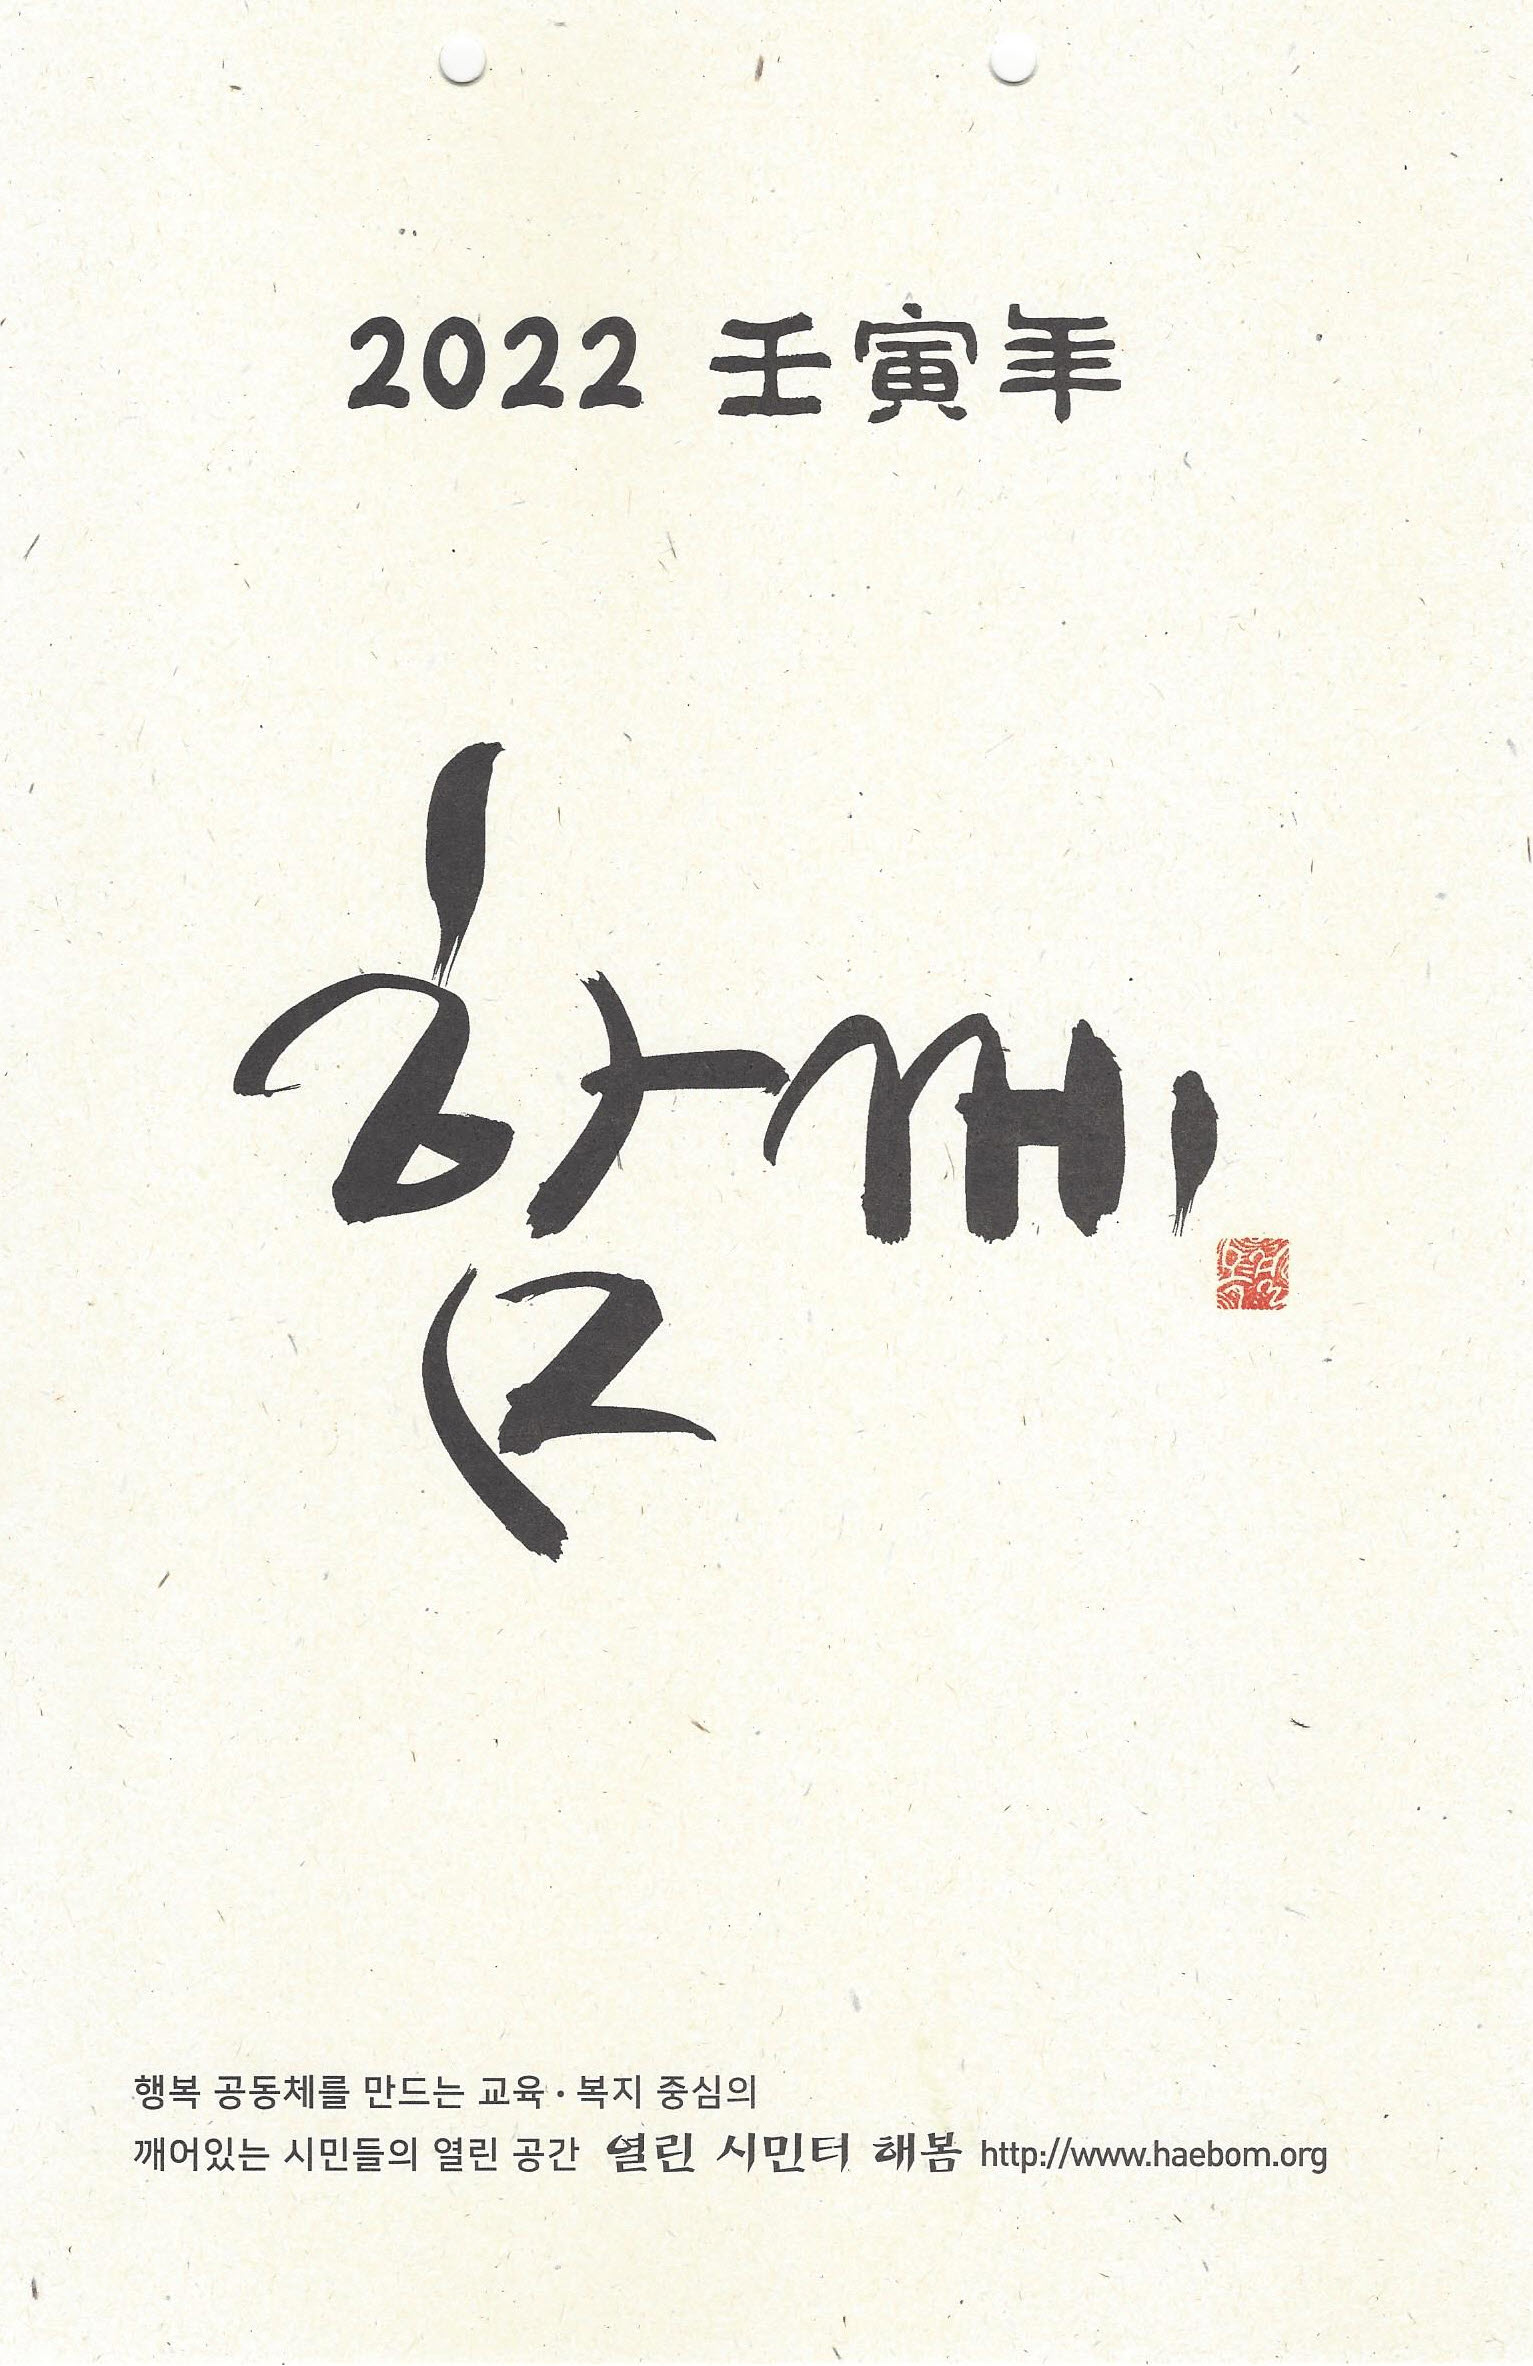 2022 壬寅年
함께
행복 공동체를 만드는 교육·복지 중심의
깨어있는 시민들의 열린 공간 열린 시민터 해봄 http://www.haebom.org